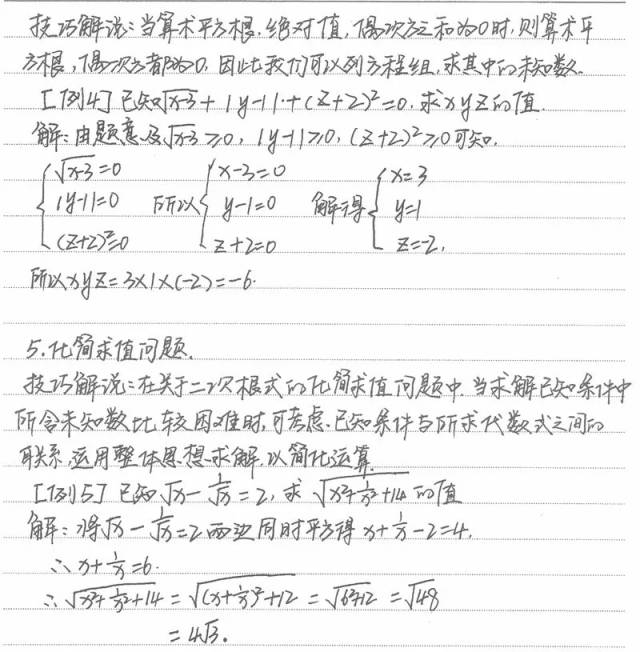 技巧解说:当算术平方根,绝对值,偶次方之和为0时,则算术平
方根,偶次方都为0,因此我们可以列方程组,求其中的未知数.
[例4]已知√(x-3)+|y-1|+(z+2)²=0,求xyz的值.
解:由题意及√(x-3)≥0,|y-1|≥0,(z+2)²≥0可知,
{√(x-3)=0 {x-3=0 {x=3
|y-1|=0 所以 y-1=0 解得 y=1
(z+2)²=0 z+2=0 z=-2,
所以xyz=3×1×(-2)=-6.
5.化简求值问题.
技巧解说:在关于二次根式的化简求值问题中,当求解已知条件中
所含未知数比较困难时,可考虑已知条件与所求代数式之间的
联系,运用整体思想求解,以简化运算.
[例5]已知√x-1/√x=2,求√(x²+1/x²+14)的值
解:将√x-1/√x=2两边同时平方得x+1/x-2=4,
∴x+1/x=6.
∴√(x²+1/x²+14)=√((x+1/x)²+12)=√(6²+12)=√48
=4√3.